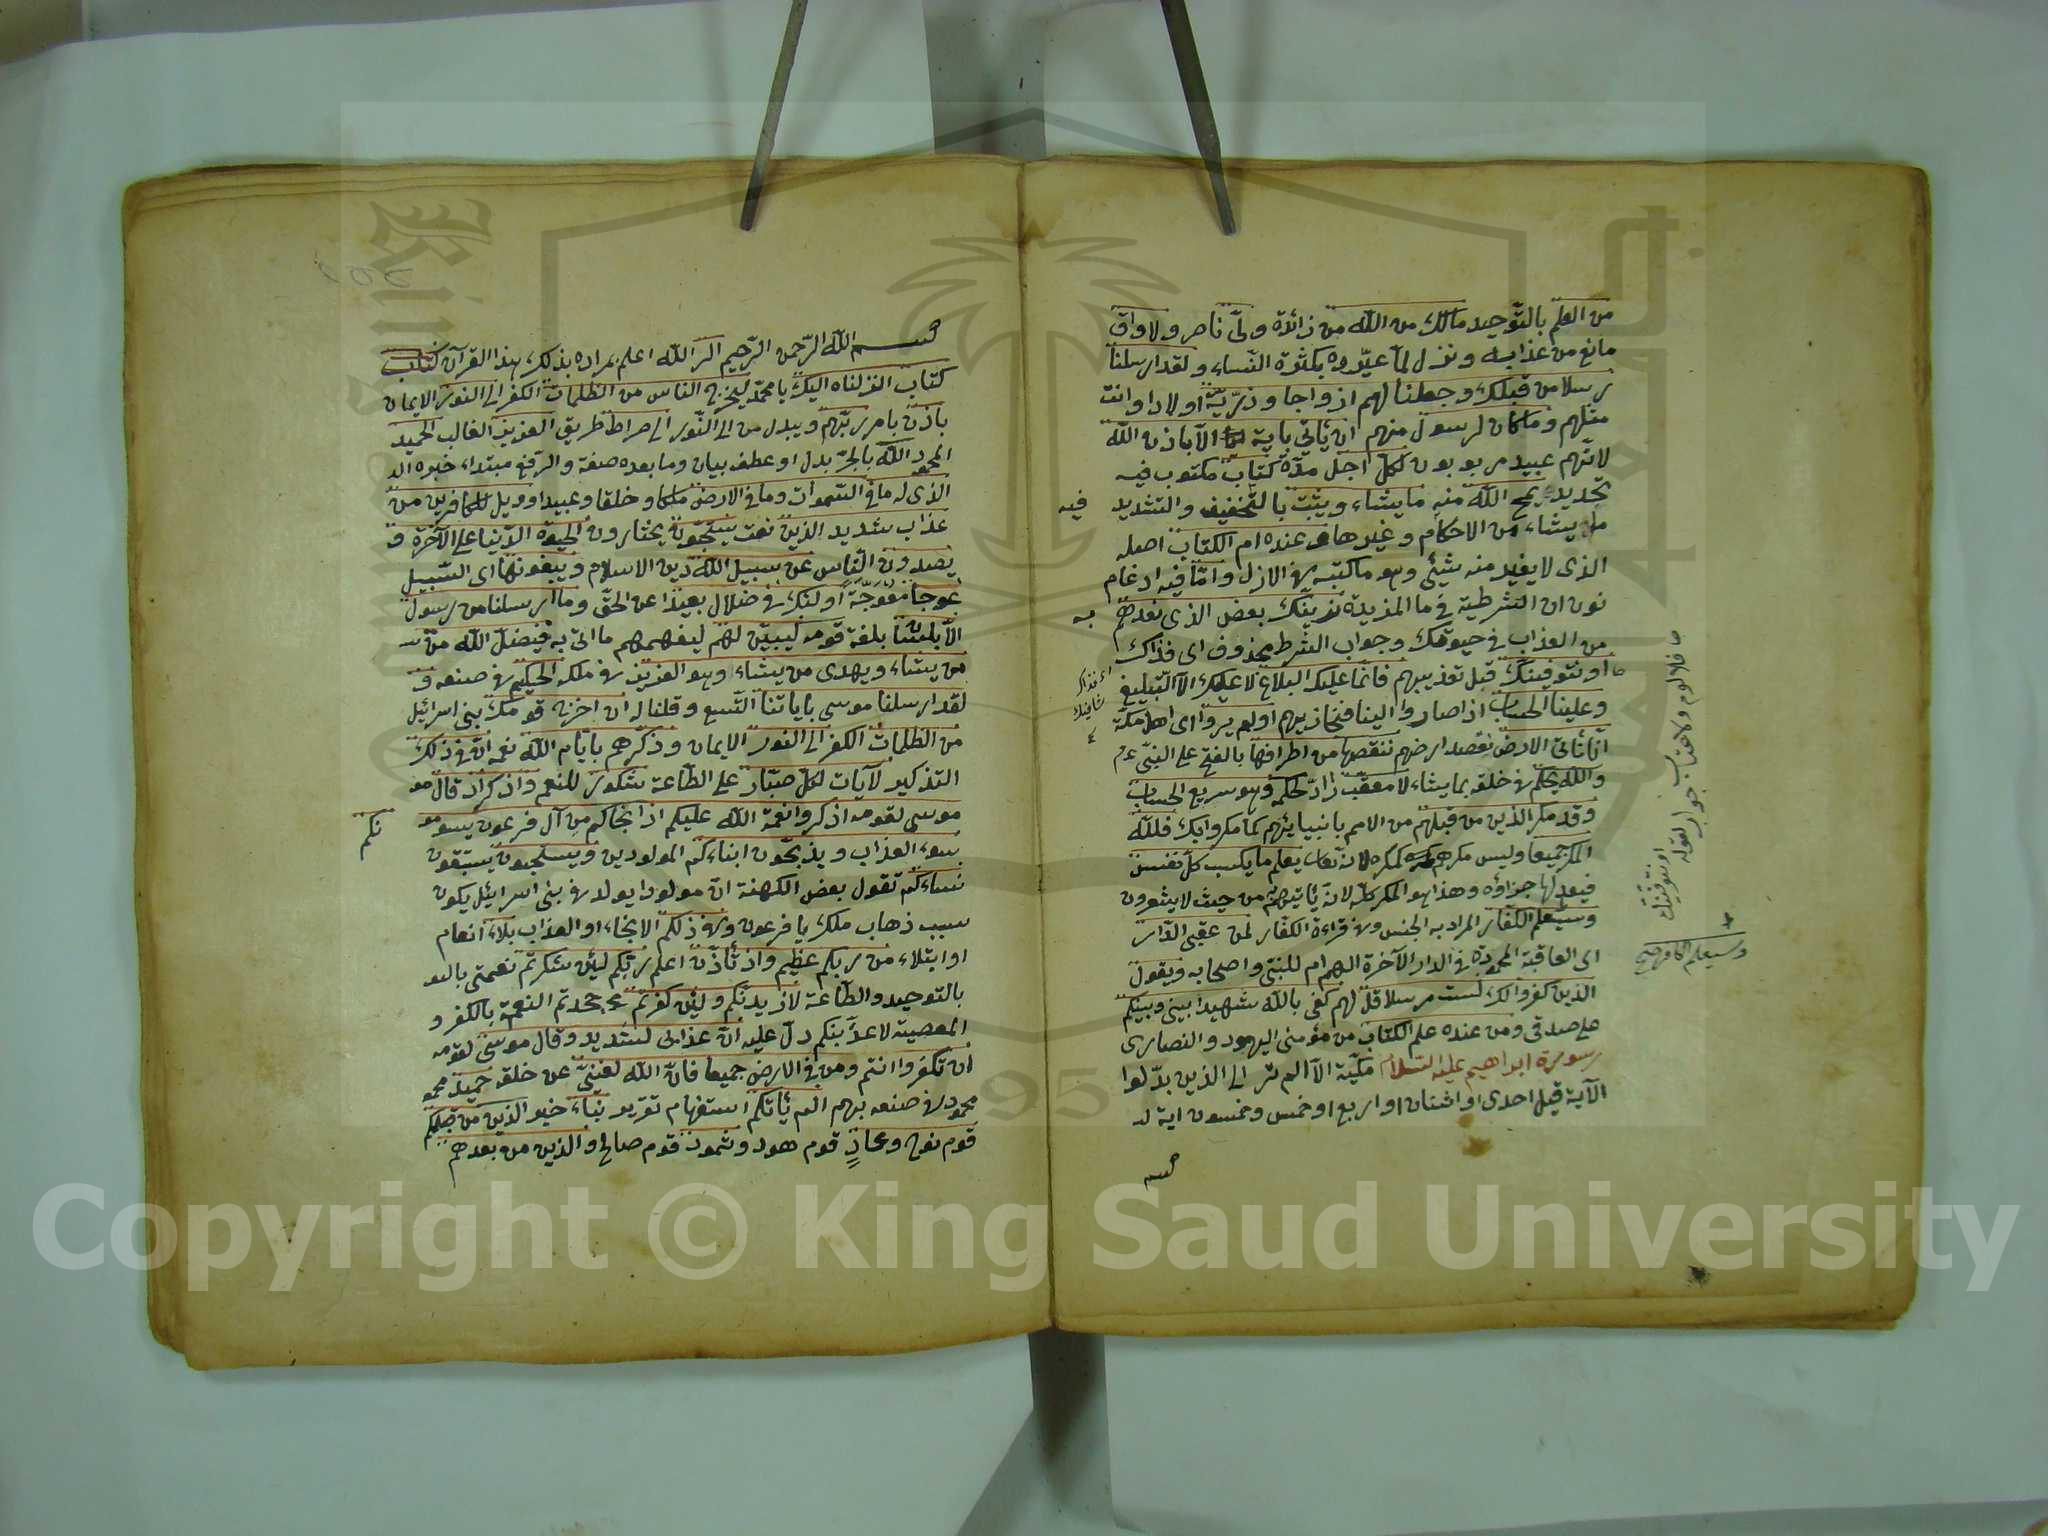 من العلم بالتّوحيد مالك من الله من زائدة ولىّ ناصر ولا واق
مانع من عذابه ونزل لمّا عيّروه بكثرة النّساء ولقد ارسلنا
رسلا من قبلك وجعلنا لهم ازواجا وذرّيّة اولادا وانت
مثلهم وما كان لرسول منهم ان يأتي باية الّا باذن الله
لانّهم عبيد مربوبون لكلّ اجل مدّة كتاب مكتوب فيه
تحديده يمح الله منه ما يشاء ويثبت بالتّخفيف والتشديد
فيه
ما يشاء من الاحكام وغيرها وعنده ام الكتاب اصله
الذى لا يغير منه شيئ وهو ما كتبه فى الازل وامّا فيه ادغام
نون ان الشرطية فى ما المزيدة نرينّك بعض الذى نعدهم
به
من العذاب فى حيوتك وجواب الشرط محذوف اى فذاك
او نتوفينّك قبل تعذيبهم فانّما عليك البلاغ لا عليك الّا التّبليغ
وعلينا الحساب اذا صاروا الينا فنجازيهم اولم يروا اى اهل مكّة
انّا نأتى الارض نقصد ارضهم ننقصها من اطرافها بالفتح على النبىّ عم
والله يحكم فى خلقه بما يشاء لا معقّب رادّ لحكمه وهو سريع الحساب
وقد مكر الذين من قبلهم من الامم بانبيائهم كما مكروا بك فللّه
المكر جميعا وليس مكرهم كمكره لانه تعالى يعلم ما يكسب كلّ نفس
فيعد لها جزاؤه وهذا هو المكر كلّه لانّه يأتيهم به من حيث لا يشعرون
وسيعلم الكفّار المراد به الجنس وفى قراءة الكفّار لمن عقبى الدّار
اى العاقبة المحمودة فى الدار الآخرة الهم ام للنبىّ واصحابه ويقول
الذين كفروا لك لست مرسلا قل لهم كفى بالله شهيدا بينى وبينكم
على صدقى ومن عنده علم الكتاب من مؤمنى اليهود والنصارى
سورة ابراهيم عليه السّلام مكّيّة الّا الم تر الى الذين بدّلوا
الآية قيل احدى او اثنتان او اربع او خمس وخمسون اية
بسم
فلا لوم ولا عتاب جواب لقوله
او نتوفينّك
وسيعلم الكافر صح
بسم الله الرّحمن الرّحيم الر الله اعلم بمراده بذلك هذا القرآن كتاب
كتاب انزلناه اليك يا محمّد لتخرج الناس من الظلمات الكفر الى النور الايمان
باذن بامر ربّهم ويبدل من الى النّور الى صراط طريق العزيز الغالب الحميد
المحمود الله بالجرّ بدل او عطف بيان وما بعده صفة والرّفع مبتداء خبره الذ
الذى له ما فى السّموات وما فى الارض ملكا وخلقا وعبيدا وويل للكافرين من
عذاب شديد الذين نعت يستحبّون يختارون الحيوة الدّنيا على الآخرة و
يصدون النّاس عن سبيل الله دين الاسلام ويبغونها اى السّبيل
عوجا معوّجة اولئك فى ضلال بعيد عن الحقّ وما ارسلنا من رسول
الّا بلسان بلغة قومه ليبيّن لهم ليفهمهم ما اتى به فيضلّ الله من
من يشاء ويهدى من يشاء وهو العزيز فى ملكه الحكيم فى صنعه و
لقد ارسلنا موسى باياتنا التّسع وقلنا له ان اخرج قومك بنى اسرائيل
من الظلمات الكفر الى النور الايمان وذكّرهم بايّام الله نعمه انّ فى ذلك
التذكير لآيات لكلّ صبّار على الطّاعة شكور للنعم واذكر اذ قال مو
موسى لقومه اذكروا نعمة الله عليكم اذ انجاكم من آل فرعون يسومو
نكم
سوء العذاب ويذبحّون ابناءكم المولودين ويستحيون يستبقون
نساءكم لقول بعض الكهنة انّ مولودا يولد فى بنى اسرائيل يكون
سبب ذهاب ملك يا فرعون وفى ذلكم الانجاء او العذاب بلاء انعام
او ابتلاء من ربكم عظيم واذ تأذّن اعلم ربّكم لئن شكرتم نعمتى بالتو
بالتوحيد والطّاعة لازيدنّكم ولئن كفرتم جحدتم النعمة بالكفر و
المعصية لاعذّبنكم دلّ عليه انّ عذابى لشديد وقال موسى لقومه
ان تكفروا انتم ومن فى الارض جميعا فانّ الله لغنىّ عن خلقه حميد محمو
محمود فى صنعه بهم الم يأتكم استفهام تقرير نباء خبر الذين من قبلكم
قوم نوح وعاد قوم هود وثمود قوم صالح والذين من بعدهم
Copyright © King Saud University